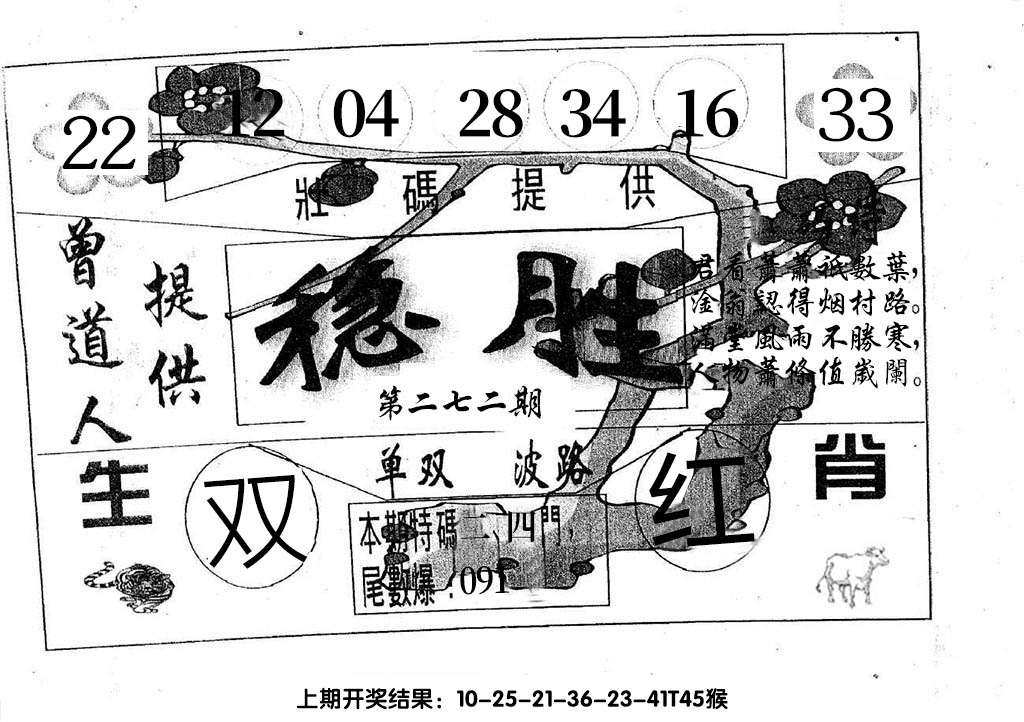 22 12 04 28 34 16 33
壯碼提供
曾道人
提供
稳胜
第二七二期
君看蕭蕭祇數葉，
淦翁認得烟村路。
滿堂風雨不勝寒，
人物蕭條值歲闌。
单双 波路
生 肖
双 红
本期特碼二、四門，
尾數爆：091
上期开奖结果：10-25-21-36-23-41T45猴